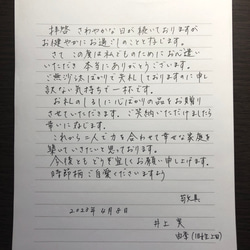 拝啓 さわやかな日が続いておりますが
お健やかにお過ごしのことと存じます。
さて この度は私どものためにお心遣い
いただき 本当にありがとうございます。
ご無沙汰ばかりで失礼しておりますのに申し
訳ない気持ちで一杯です。
お礼のしるしに心ばかりの品をお贈り
させていただきます。ご笑納いただけましたら
幸いに存じます。
これから二人で力を合わせて幸せな家庭を
築いていきたいと思っております。
今後ともどうぞ宜しくお願い申し上げます。
時節柄ご自愛くださいますよう
敬具
2023年4月8日
井上 実